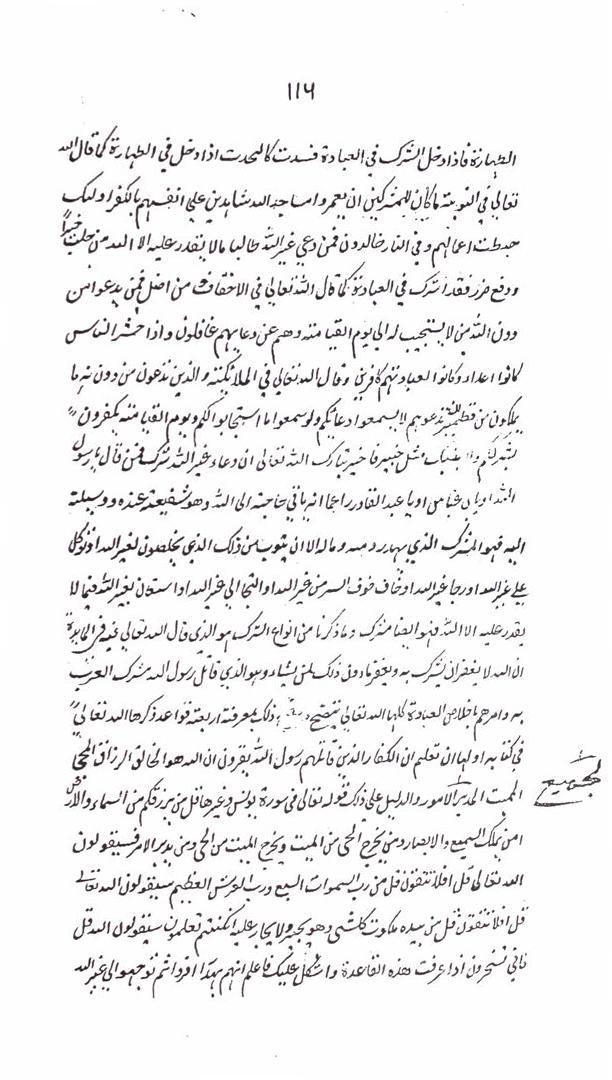 ١١٦
الطهارة فاذا دخل الشرك في العبادة فسدت كالحدث اذا دخل في الطهارة كما قال الله
تعالي في التوبة ما كان للمشركين ان يعمروا مساجد الله شاهدين علي انفسهم بالكفر اوليك
حبطت اعمالهم وفي النار خالدون فمن دعي غير الله طالبا مالا يقدر عليه الا الله من جلب خيراً
ودفع ضرر فقد اشرك في العبادة كما قال الله تعالي في الاحقاف من اضل فمن يدعوا من
دون الله من لا يستجيب له الي يوم القيامته وهم عن دعايهم غافلون واذا حشر الناس
كانوا اعداء وكانوا بعبادتهم كافرين وقال الله تعالي في الملائكته والذين تدعون من دونه ما
يملكون من قطمير تدعوهم لا يسمعوا دعائكم ولو سمعوا ما استجابوا لكم ويوم القيامته يكفرون
بشرككم ولا ينبئك مثل خبير فاخبر تبارك الله تعالي ان دعاء غير الله شرك فمن قال يارسول
الله او يا ابن عباس او يا عبد القادر راجيا انه باني حاجته الي الله وهو شفيعه عنده ووسيلته
اليه فهو المشرك الذي يهدر دمه وماله الا ان يتوب من ذلك الذي يحلفون لغير الله او توكل
علي غير الله او رجا غير الله او خاف خوف السر من غير الله او التجا الي غير الله او استعان بغير الله فيما لا
يقدر عليه الا الله فهو ايضا مشرك وما ذكرنا من انواع الشرك هو الذي قال الله تعالي فيه في المايدة
ان الله لا يغفر ان يشرك به ويغفر ما دون ذلك لمن يشاء وهو الذي قاتل رسول الله مشرك العرب
به وامرهم باخلاص العبادة كلها الله تعالي يتضح ذلك بمعرفة اربعته قواعد ذكرها الله تعالي
في كتابه اولها ان تعلم ان الكفار الذين قاتلهم رسول الله يقرون ان الله هو الخالق الرزاق المحي
المميت المدبر الامور والدليل علي ذلك قوله تعالي في سورة يونس وغيرها قل من يرزقكم من السماء والارض
لجميع
امن يملك السميع والابصار ومن يخرج الحي من الميت ويخرج الميت من الحي ومن يدبر الامر فسيقولون
الله تعالي قل افلا تتقون قل من رب السموات السبع ورب العرش العظيم سيقولون الله تعالي
قل افلا تتقون قل من بيده ملكوت كل شي وهو يجير ولا يجار عليه ان كنتم تعلمون سيقولون الله قل
فاني تسحرون اذا عرفت هذه القاعدة واشكل عليك فاعلم انهم بهذا اقروا ثم توجهوا الي غير الله